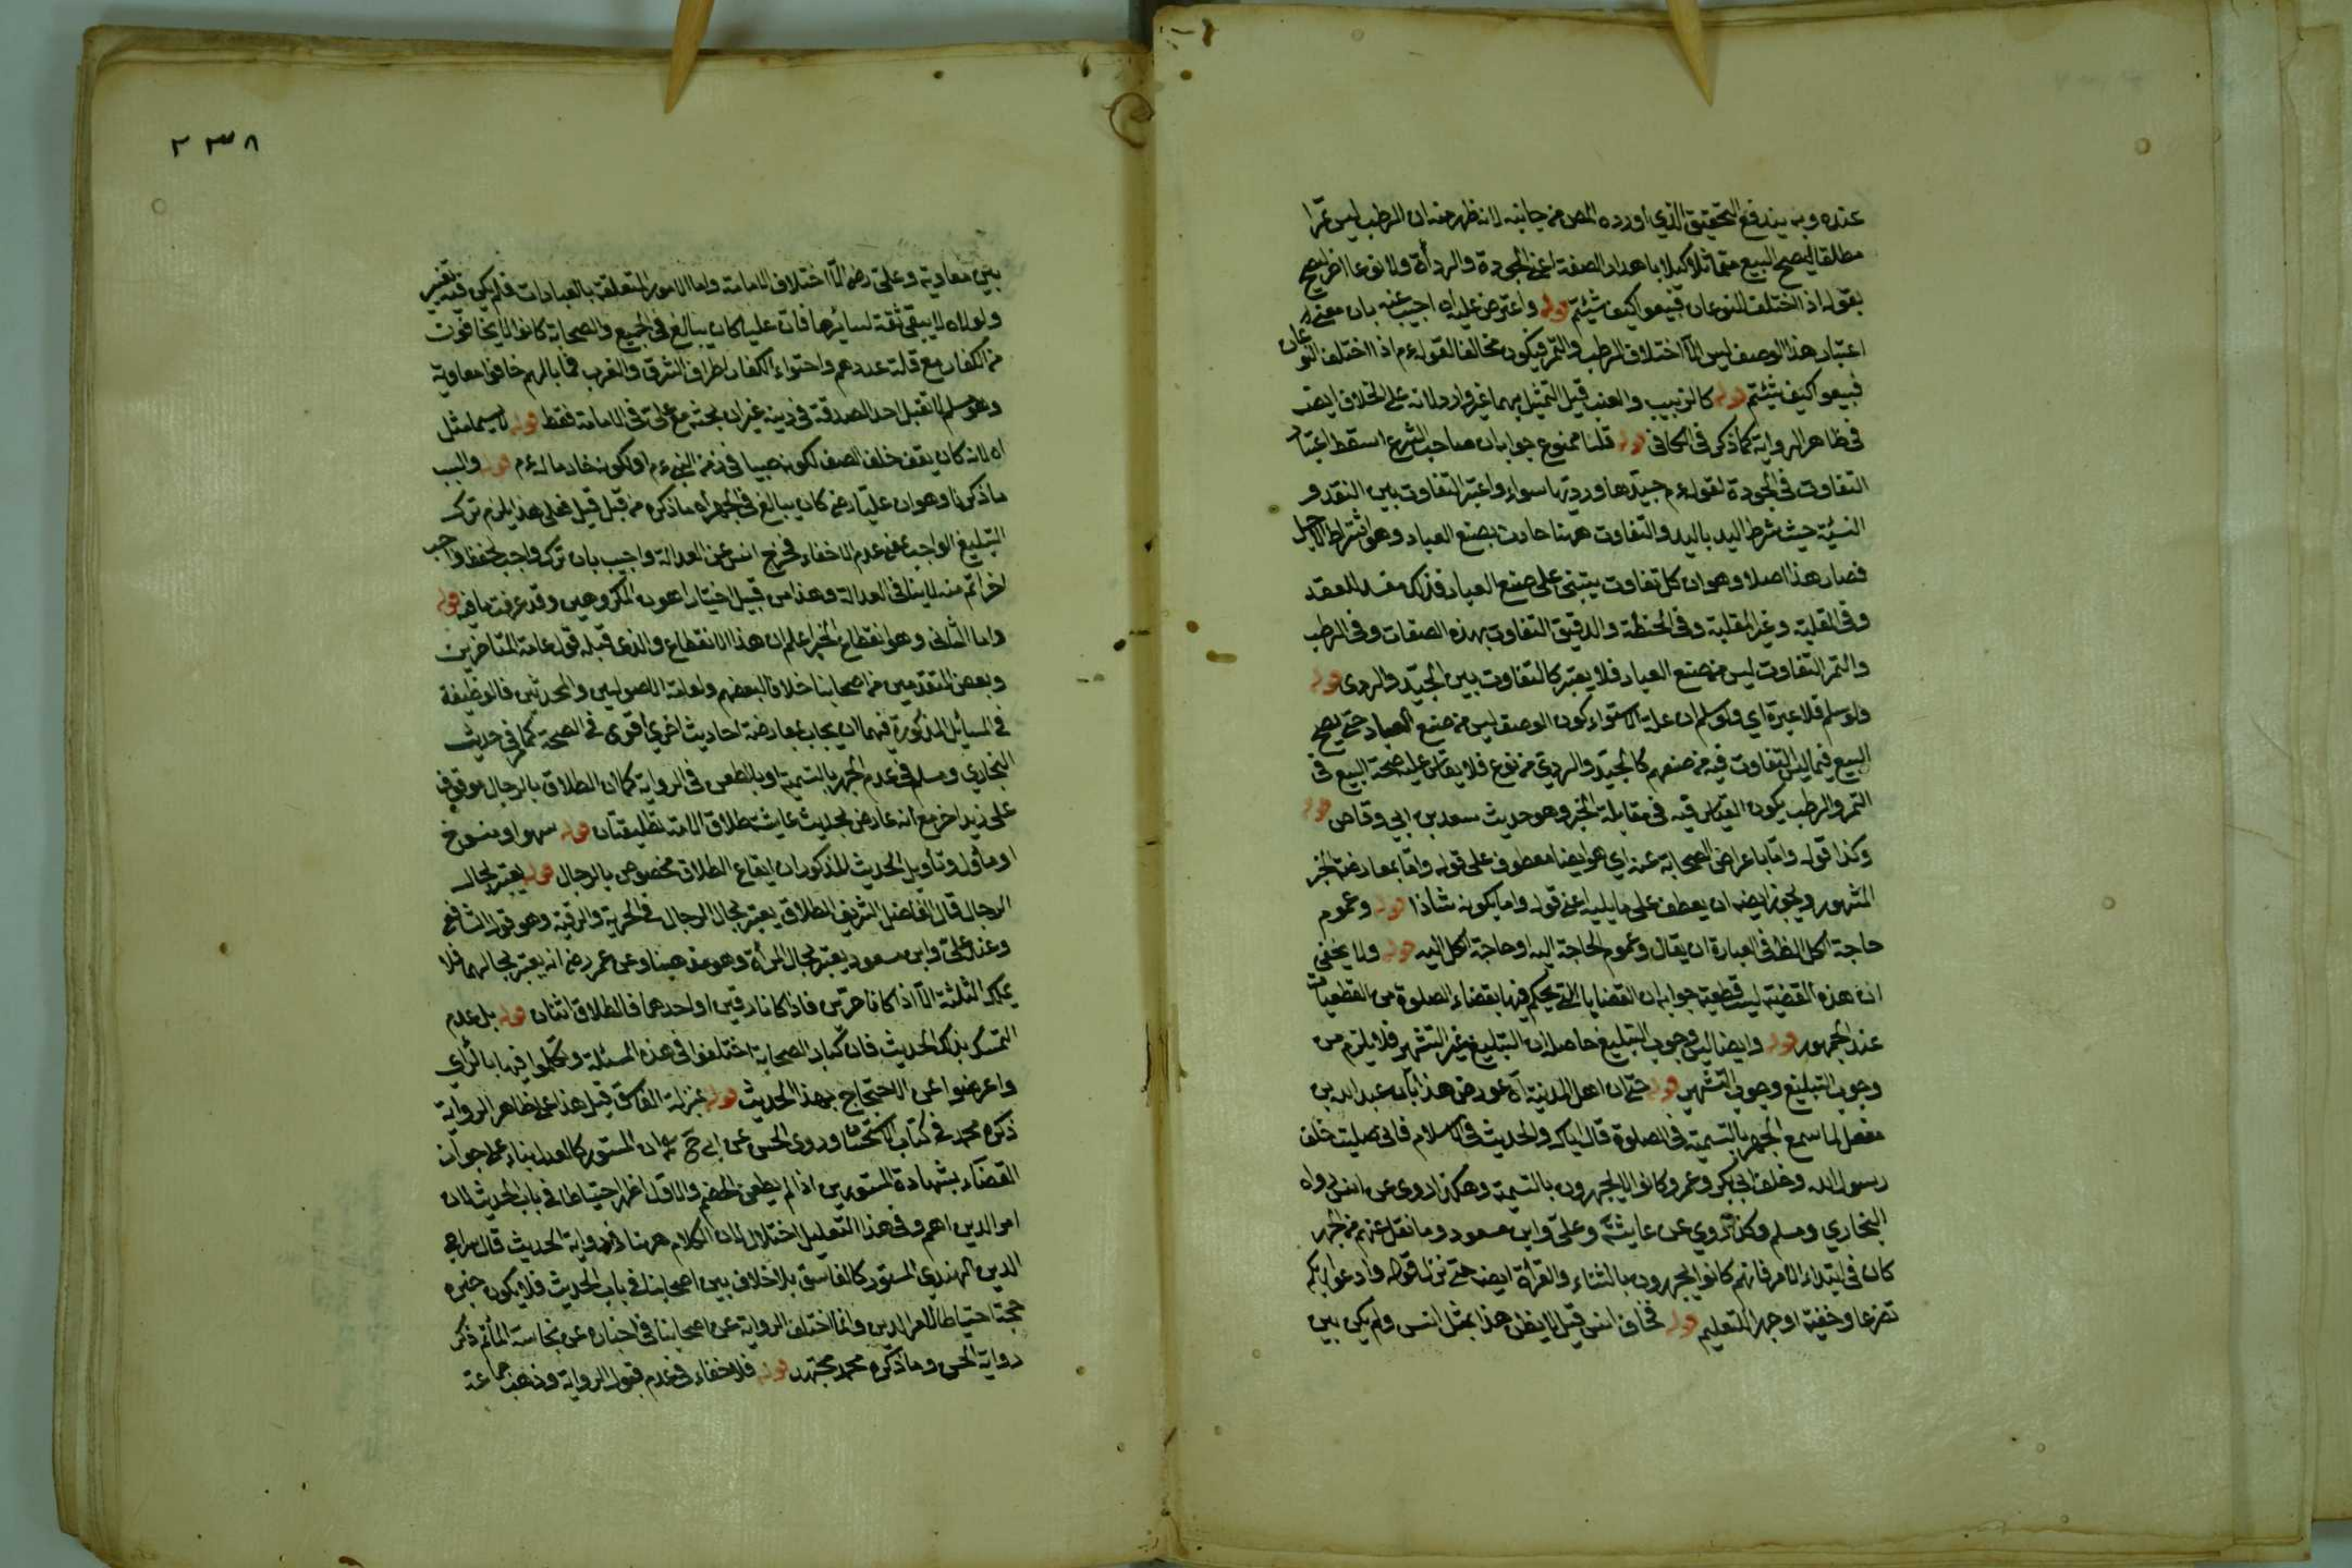 عنده وبه يندفع التحقيق الذي اورده المص من جانبه لانه ظهر منه ان الرطب ليس تمرا
مطلقا ليصح البيع متماثلا كيلا باهدار الصفة اعني الجودة والرداءة ولا نوعا اخر ليصح
بقوله اذا اختلف النوعان فبيعوا كيف شئتم قوله واعترض عليه اه اجيب عنه بان معنى
اعتبار هذا الوصف ليس الا اختلاف الرطب والتمر فيكون مخالفا لقوله ءم اذا اختلف النوعان
فبيعوا كيف شئتم قوله كالزبيب والعنب قيل التمثيل بهما غير وارد لانه على الخلاف ايضا
في ظاهر الرواية كما ذكر في الكافي قوله قلنا ممنوع جوابه ان صاحب الشرع اسقط اعتبار
التفاوت في الجودة لقوله ءم جيدها ورديها سواء واعتبر التفاوت بين النقد و
النسيئة حيث شرط اليد باليد والتفاوت ههنا حادث بصنع العباد وهو اشتراط الاجل
فصار هذا اصلا وهو ان كل تفاوت يبتنى على صنع العباد فذلك مفسد للعقد
وفي المقلية وغير المقلية وفي الحنطة والدقيق التفاوت بهذه الصفات وفي الرطب
والتمر التفاوت ليس من صنع العباد فلا يعتبر كالتفاوت بين الجيد والردى قوله
ولو سلم فلا عبرة اي ولو سلم ان علة الاستواء كون الوصف ليس من صنع العباد حتى يصح
البيع فيما ليس التفاوت فيه من صنعهم كالجيد والردي من نوع فلا يقاس عليه صحة البيع في
التمر والرطب يكون القياس فيه في مقابلة الخبر وهو حديث سعد بن ابي وقاص قوله
وكذا قوله واما باعراض الصحابة عنه اي هو ايضا معطوف على قوله واما بمعارضة الخبر
المشهور ويجوز ايضا ان يعطف على ما يليه اعني قوله واما بكونه شاذا قوله وعموم
حاجة الكل الظ في العبارة ان يقال وعموم الحاجة اليه او حاجة الكل اليه قوله ولا يخفى
ان هذه القضية ليست قطعية جوابه ان القضايا التي يحكم فيها بقضاء الصلوة من القطعيات
عند الجمهور قوله وايضا ليس وجوب التبليغ حاصله ان التبليغ غير التشهير فلا يلزم من
وجوب التبليغ وجوب التشهير قوله حتى ان اهل المدينة اه عورض هذا بان عبد الله بن
مغفل لما سمع الجهر بالتسمية في الصلوة قال اياك والحديث في الاسلام فاني صليت خلف
رسول الله وخلف ابي بكر وعمر وكانوا لا يجهرون بالتسمية وهكذا روى عن انس رواه
البخاري ومسلم وكذا روي عن عايشة وعلى وابن مسعود وما نقل عنهم من الجهر
كان في ابتداء الامر فانهم كانوا يجهرون بالثناء والقراءة ايضا حتى نزل قوله وادعوا ربكم
تضرعا وخفية او جهرا للتعليم قوله فخاف انس قيل لا يظن هذا بمثل انس ولم يكن بين
٢٣٨
بين معاوية وعلى رضه الا اختلاف الامامة واما الامور المتعلقة بالعبادات فلم يكن فيه تغيير
ولولاه لا يبقى ثقة لسائرها فان عليا كان يبالغ في الجميع والصحابة كانوا لا يخافون
من الكفار مع قلة عددهم واحتواء الكفار اطراف الشرق والغرب فما بالهم خافوا معاوية
وهو مسلم لا تقبل احدا لصدقه في دينه غير ان بحثه مع على في الامامة فقط قوله لا سيما مثل
اه لانه كان يقف خلف الصف لكونه صبيا في زمن النبي ءم او لكونه خادما له ءم قوله والسبب
ما ذكرنا وهو ان عليا رضه كان يبالغ في الجهر اه ما ذكره من قبل قيل فعلى هذا يلزم ترك
التبليغ الواجب بمعنى عدم الاخفاء فخرج انس عن العدالة واجيب بان ترك واجب لحفظ واجب
اخر اتم منه لا ينافي العدالة وهذا من قبيل اختيار اهون المكروهين وقد عرفت ما فيه قوله
واما الثاني وهو انقطاع الخبر اعلم ان هذا الانقطاع والذي قبله قول عامة المتاخرين
وبعض المتقدمين من اصحابنا خلافا لبعضهم ولعامة الاصوليين والمحدثين فالوظيفة
في المسائل المذكورة فيهما ان يجاب بمعارضة احاديث اخرى اقوى في الصحة كما في حديث
البخاري ومسلم في عدم الجهر بالتسمية او بالطعن في الرواية كما ان الطلاق بالرجال موقوف
على زيد اخر مع انه عارض بحديث عايشة طلاق الامة تطليقتان قوله سهو او منسوخ
او مأول وتأويل الحديث المذكور ان ايقاع الطلاق مخصوص بالرجال قوله يعتبر بحال
الرجال قال الفاضل الشريف الطلاق يعتبر بحال الرجال في الحرية والرقية وهو قول الشافعي
وعند على وابن مسعود يعتبر بحال المرأة وهو مذهبنا وعن عمر رضه انه يعتبر بحالهما فلا
يملك الثلثة الا اذا كانا حرين فاذا كانا رقين او احدهما فالطلاق اثنان قوله بل عدم
التمسك بذلك الحديث فان كبار الصحابة اختلفوا في هذه المسئلة وتكلموا فيها بالرأي
واعرضوا عن الاحتجاج بهذا الحديث قوله بمنزلة الفاسق قيل هذا على ظاهر الرواية
ذكره محمد في كتاب الاستحسان وروى الحسن عن ابي ح ان المستور كالعدل بناء على جواز
القضاء بشهادة المستورين اذا لم يطعن الخصم والاول اظهر احتياطا في باب الحديث لان
امر الدين اهم وفي هذا التعليل اختلال لان الكلام ههنا في رواية الحديث قال سراج
الدين الهندي المستور كالفاسق بلا خلاف بين اصحابنا في باب الحديث فلا يكون خبره
حجة احتياطا لامر الدين وانما اختلف الرواية عن اصحابنا في اخباره عن نجاسة الماء ثم ذكر
رواية الحسن وما ذكره محمد مجتهد قوله فلا خفاء في عدم قبول الرواية وذهب جماعة